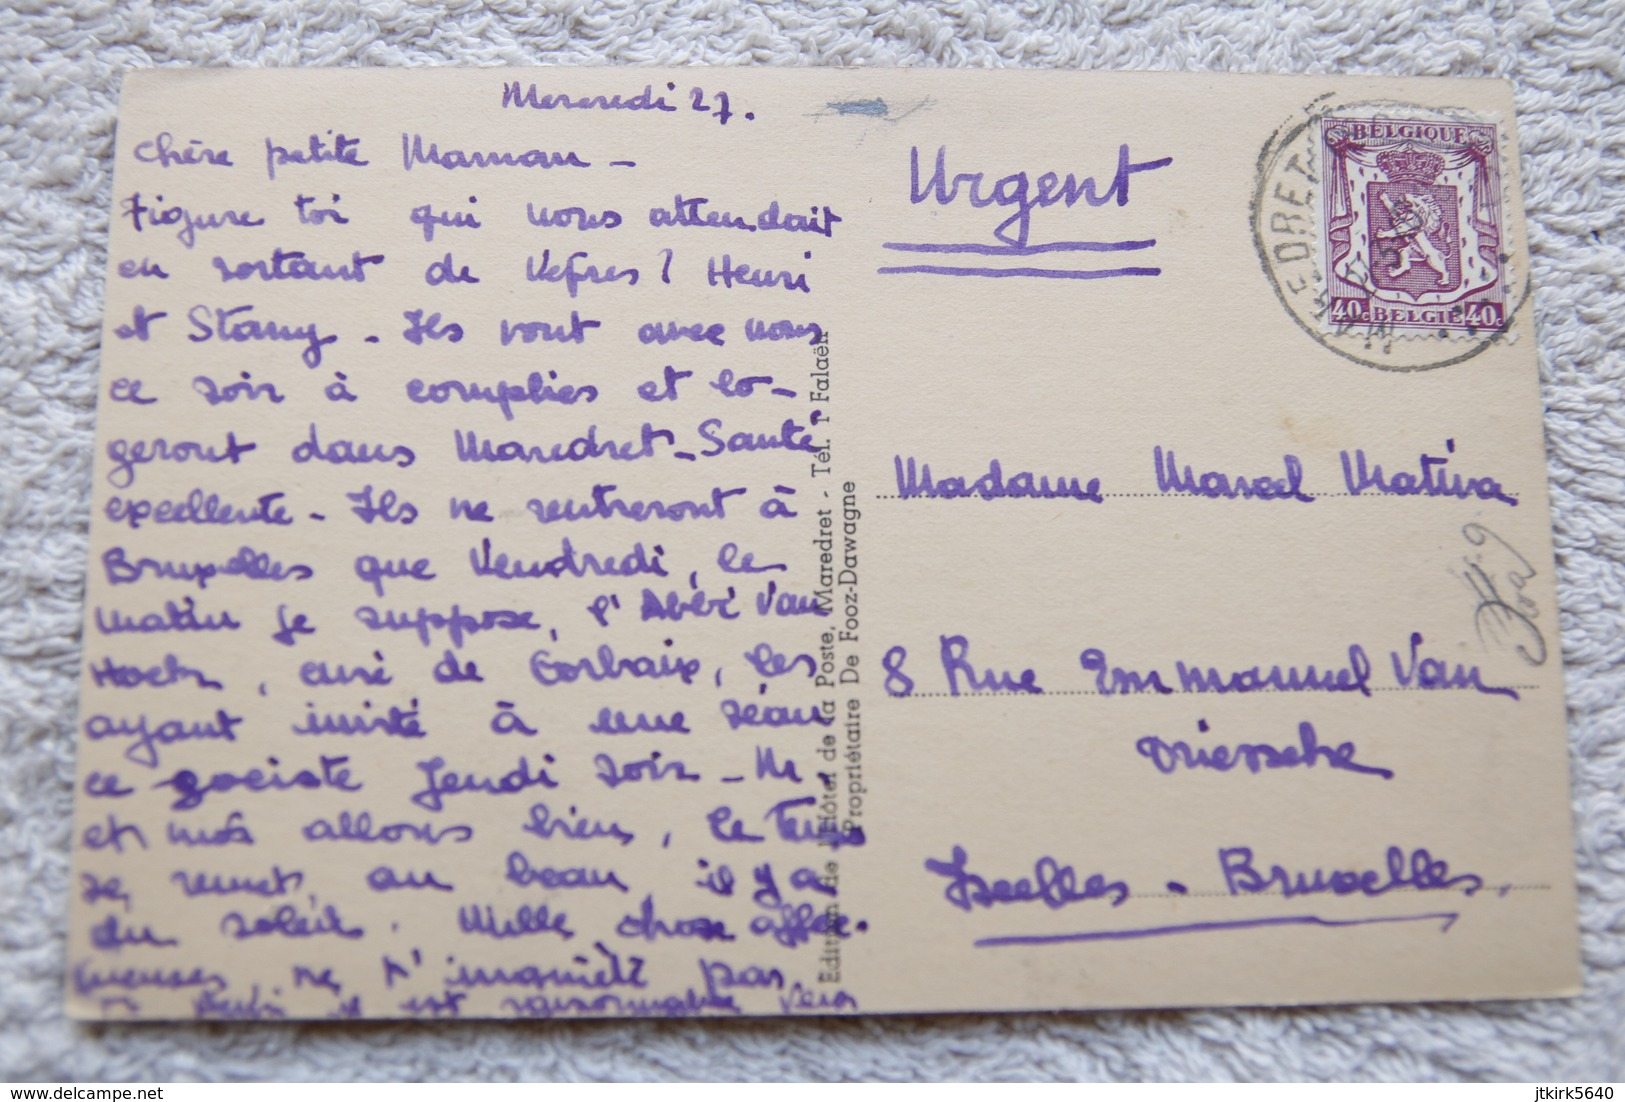 Mercredi 27.
Chère petite Maman -
Figure toi qui nous attendait
en sortant de Vêpres ? Henri
et Stany - Ils vont avec nous
ce soir à complies et lo-
geront dans Maredret - Santé
excellente - Ils ne rentreront à
Bruxelles que Vendredi, le
matin je suppose, l'Abbé Van
, curé de Corbaix, les
ayant invité à une séan
ce sociste Jeudi soir - M.
et moi allons bien, le temps
se remet au beau, il y a
du soleil. Mille choses affec-
tueuses, ne t'inquiète pas.
il est raisonnable
Edition de l'Hôtel de la Poste, Maredret - Tél. 1 Falaën
Propriétaire De Fooz-Dawagne
Urgent
BELGIQUE
40c BELGIE 40c
Madame Marcel Mativa
8 Rue Emmanuel Van
Driessche
Ixelles - Bruxelles.
delcampe.net
jtkirk5640